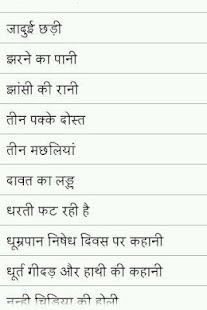 जादुई छड़ी
झरने का पानी
झांसी की रानी
तीन पक्के दोस्त
तीन मछलियां
दावत का लड्डू
धरती फट रही है
धूम्रपान निषेध दिवस पर कहानी
धूर्त गीदड़ और हाथी की कहानी
नन्ही चिड़िया की होली